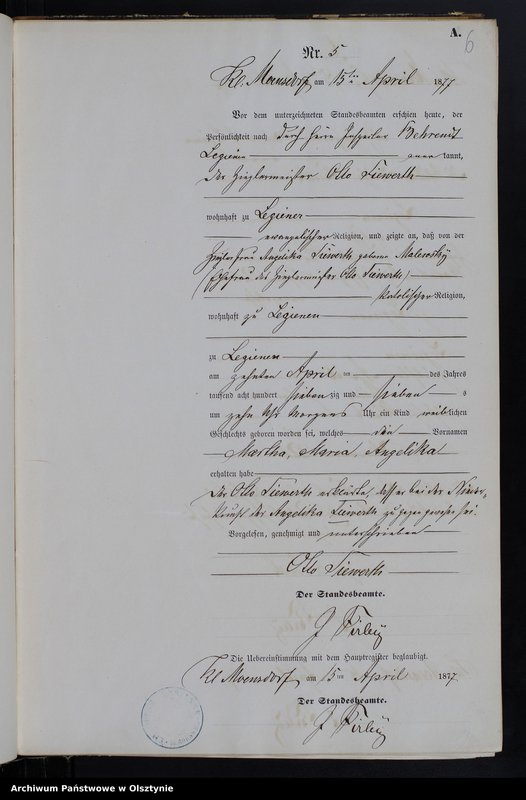 A.
6
Nr. 5
Kl. Moensdorf am 15ten April 1877
Vor dem unterzeichneten Standesbeamten erschien heute, der
Persönlichkeit nach durch Herrn Inspector Behrendt
Legienen kannt,
der Zieglermeister Otto Siewerth
wohnhaft zu Legienen
evangelischer Religion, und zeigte an, daß von der
Zieglerfrau Angelika Siewerth geborene
Ehefrau des Zieglermeister Otto Siewerth
katolischer Religion,
wohnhaft zu Legienen
zu Legienen
am zehnten April des Jahres
tausend acht hundert sieben zig und sieben
um zehn Uhr Morgens Uhr ein Kind weiblichen
Geschlechts geboren worden sei, welches die Vornamen
Martha, Maria, Angelika
erhalten habe
Der Otto Siewerth erklärte, daß er bei der Nieder-
kunft der Angelika Siewerth zugegen gewesen sei.
Vorgelesen, genehmigt und unterschrieben
Otto Siewerth
Der Standesbeamte.
J
Die Uebereinstimmung mit dem Hauptregister beglaubigt.
Kl Moensdorf am 15ten April 1877.
Der Standesbeamte.
J
Archiwum Państwowe w Olsztynie